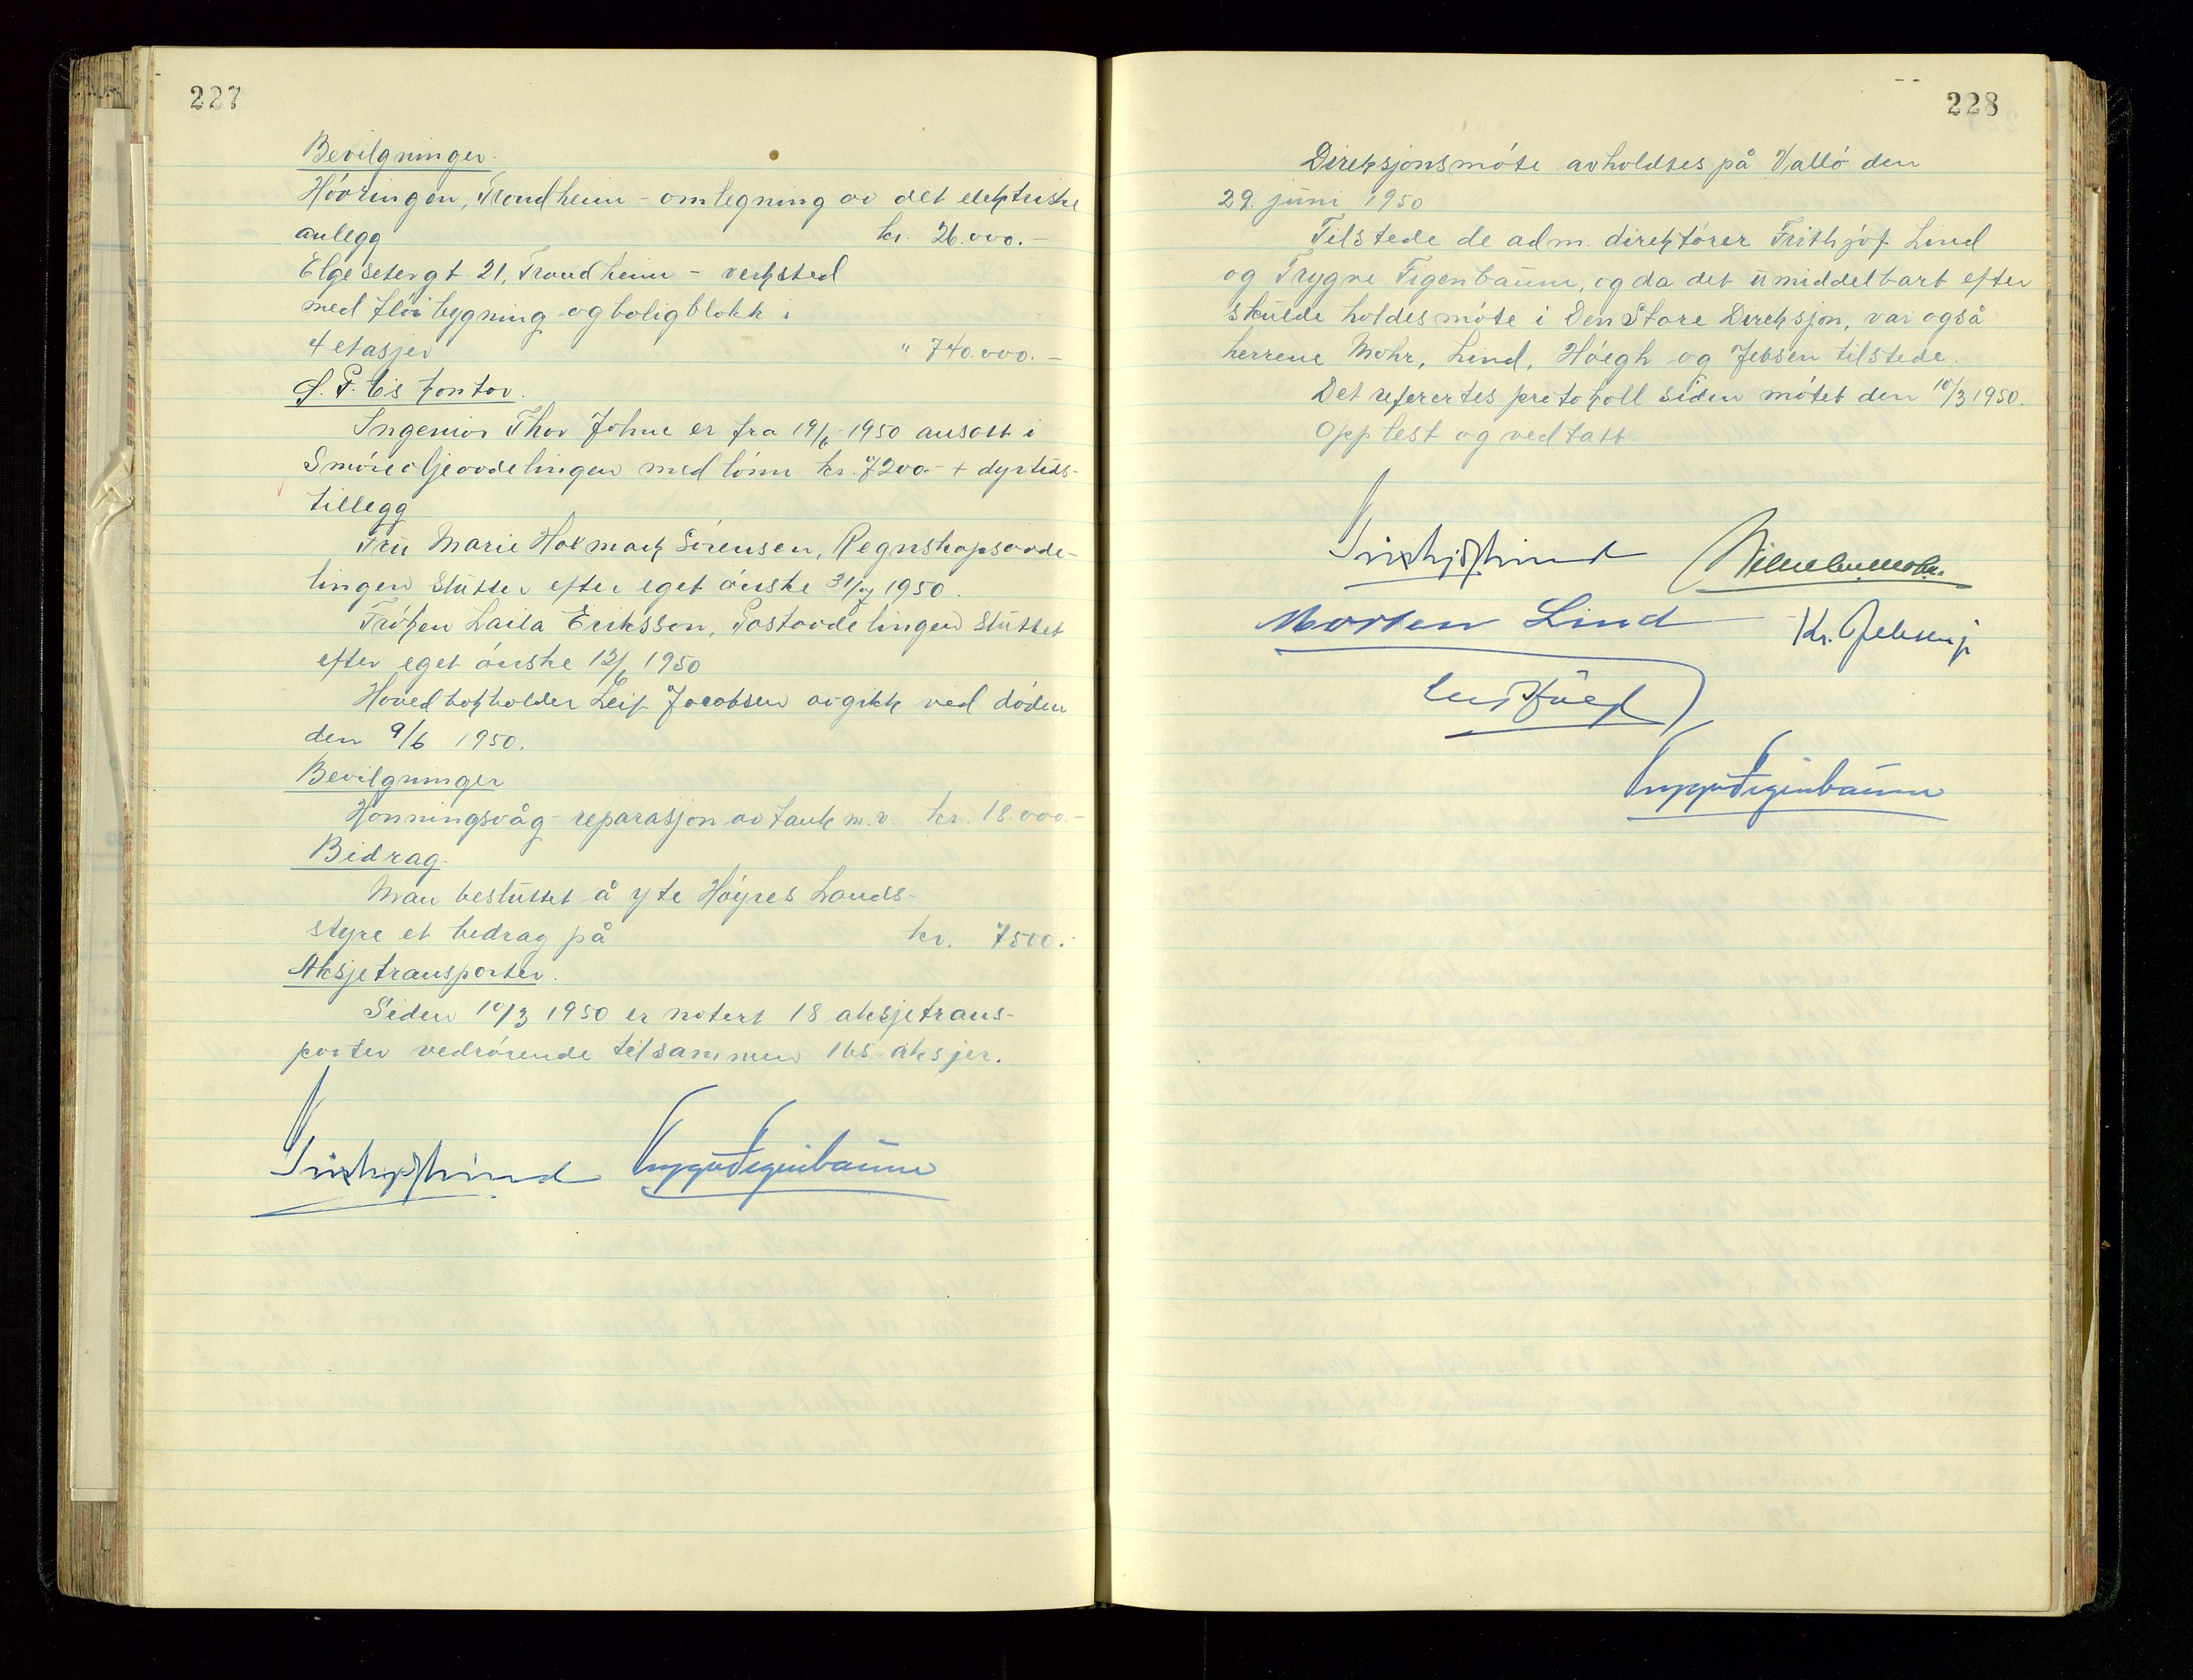 227
Bevilgninger.
Høvringen, Trondheim - omlegning av det elektriske
anlegg kr. 26.000.-
Elgesetergt. 21, Trondheim - verksted
med fløibygning og boligblokk i
4 etasjer " 740.000.-
kontor.
Ingeniør Thor Johne er fra 19/6-1950 ansatt i
Smøreoljeavdelingen med lønn kr. 7200.- + dyrtids-
tillegg
Fru Marie Holmark Sørensen, Regnskapsavde-
lingen slutter efter eget ønske 31/7 1950.
Frøken Laila Eriksson, Postavdelingen sluttet
efter eget ønske 12/6 1950
Hovedbokholder Leif Jacobsen avgikk ved døden
den 9/6 1950.
Bevilgninger
Honningsvåg - reparasjon av tank m.v. kr. 18.000.-
Bidrag.
Man besluttet å yte Høyres Lands-
styre et bedrag på kr. 7500.-
Aksjetransporter.
Siden 10/3 1950 er notert 18 aksjetrans-
porter vedrørende tilsammen 165 aksjer.
Frithjof Lind Trygve Figenbaum
228
Direksjonsmøte avholdtes på Vallø den
29. juni 1950
Tilstede de adm. direktører Frithjof Lind
og Trygve Figenbaum, og da det umiddelbart efter
skulde holdes møte i Den Store Direksjon, var også
herrene Mohr, Lind, Høegh og Jebsen tilstede.
Det referertes protokoll siden møtet den 10/3 1950.
Opplest og vedtatt.
Frithjof Lind Wilhelm Mohr.
Morten Lind Kr. Jebsen jr
Leif Høegh
Trygve Figenbaum